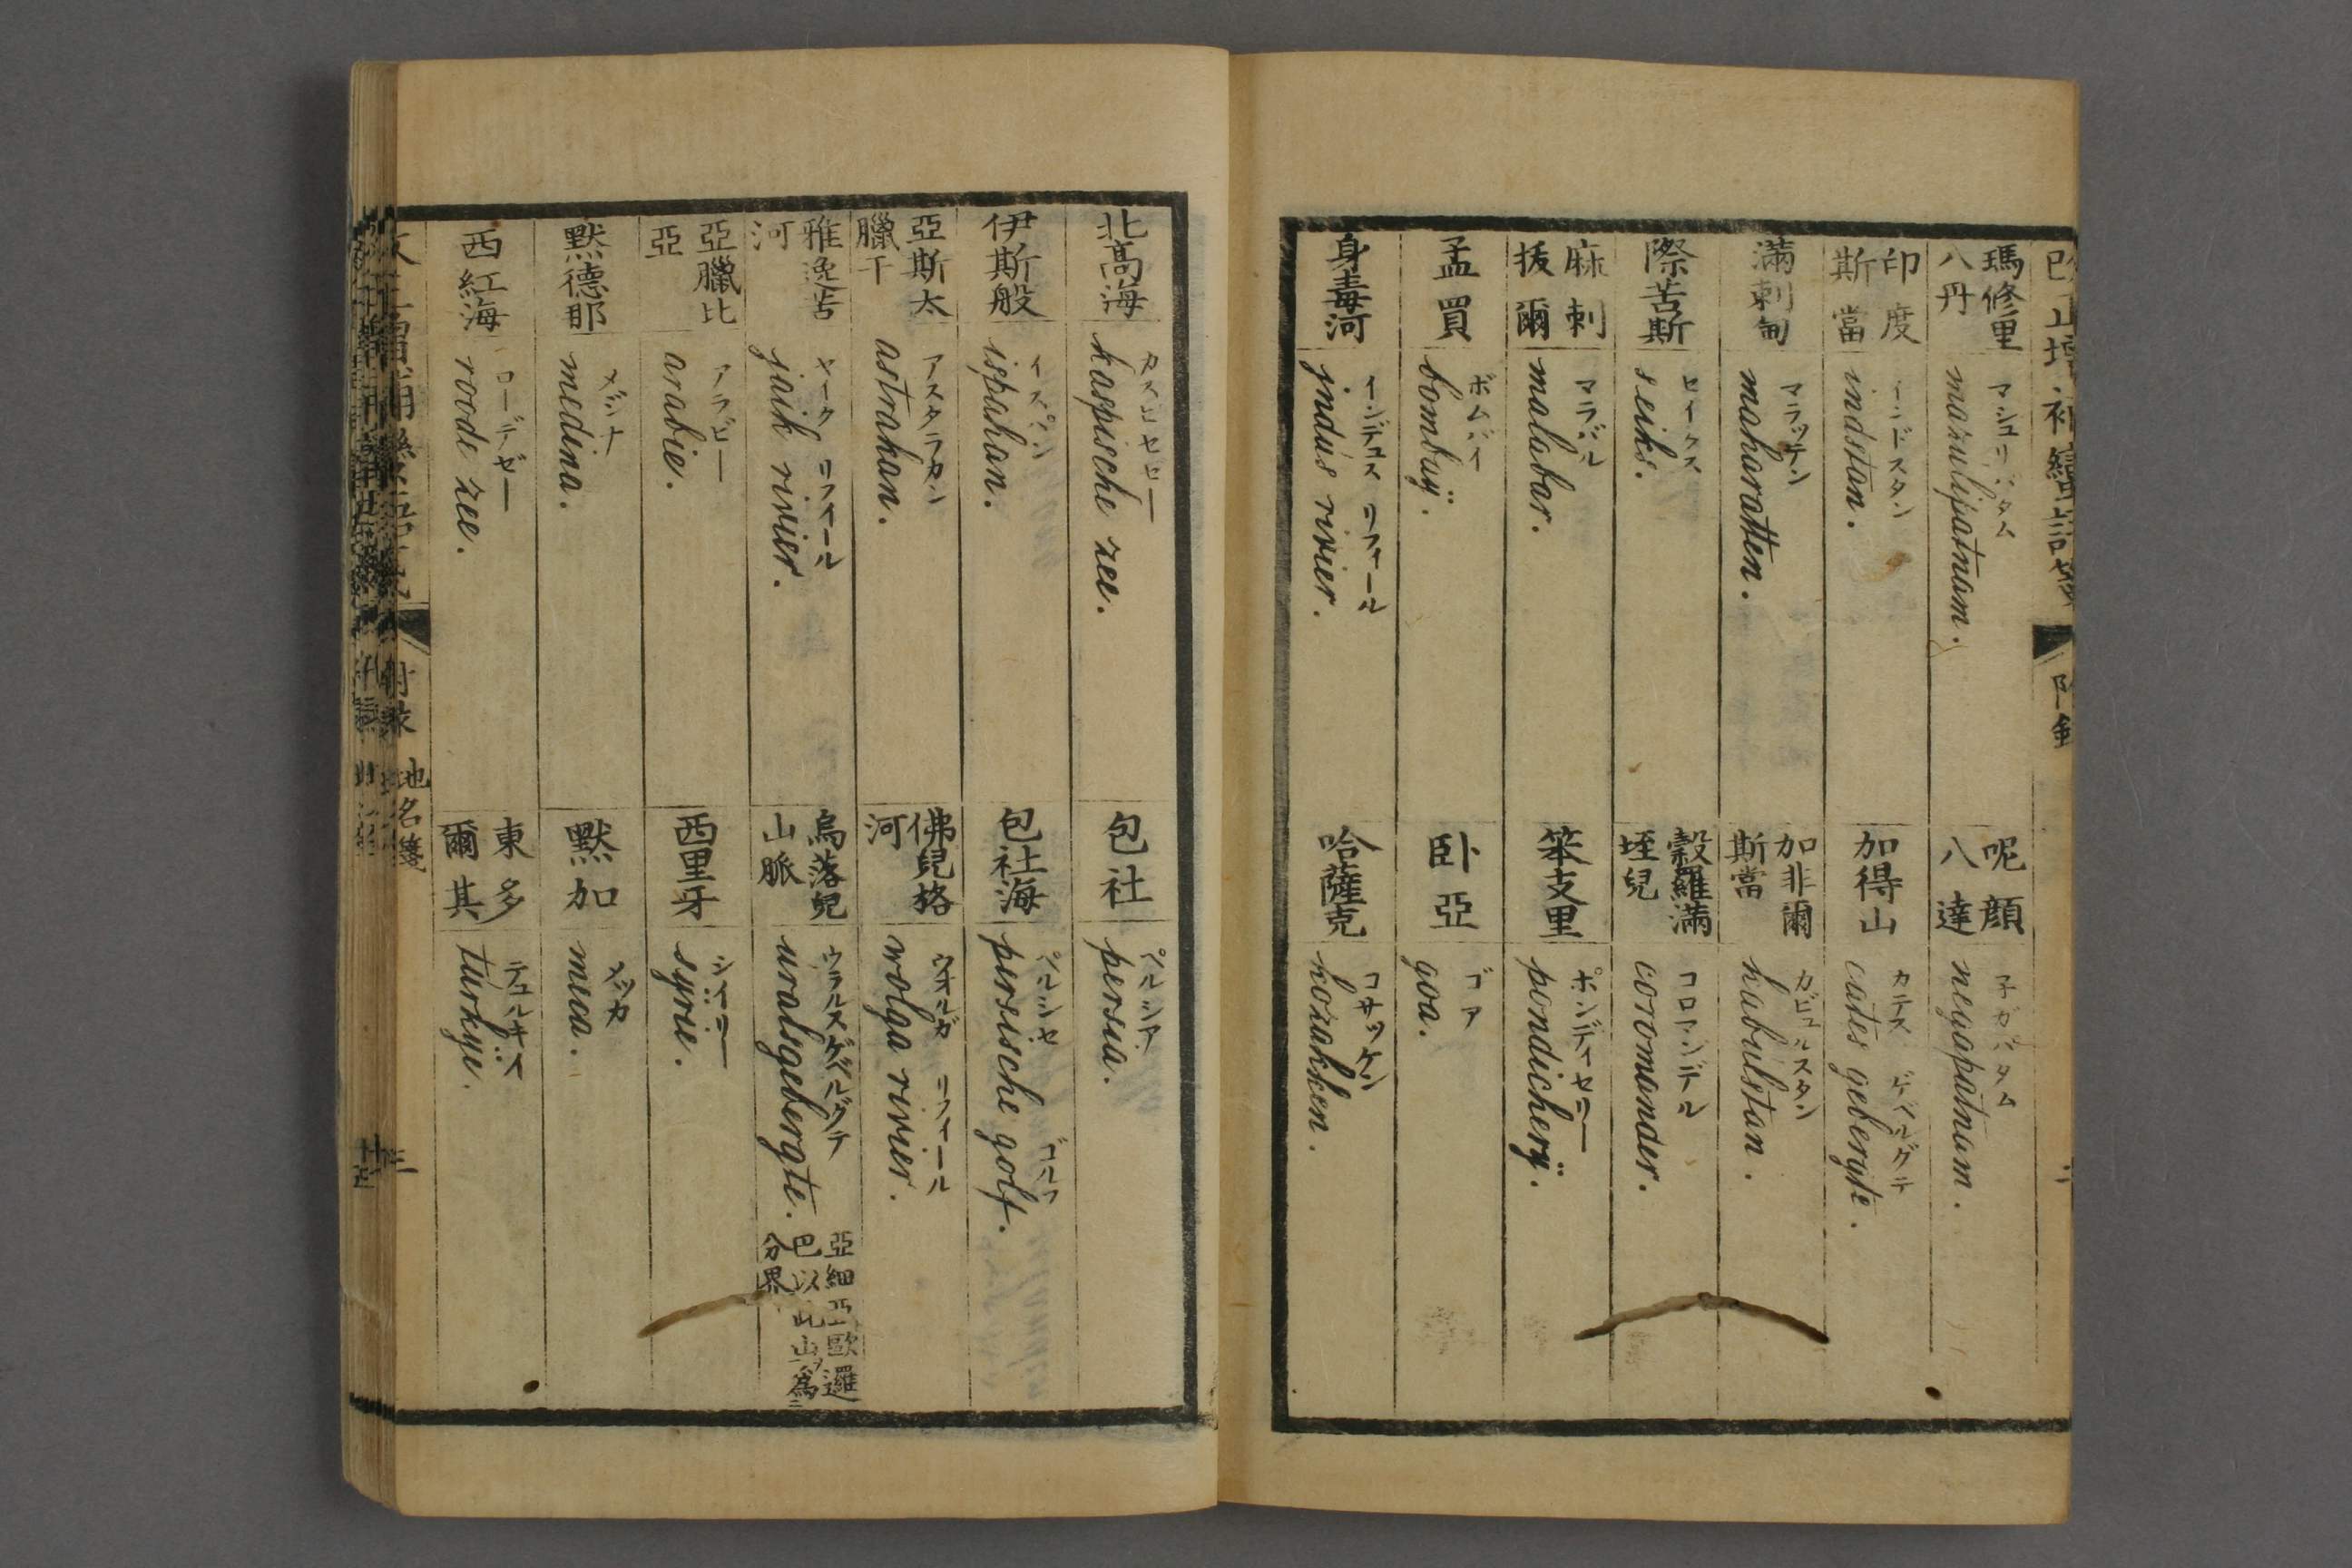 瑪修里八丹
マシュリパタム
masulipatnam.
呢顔八達
子ガパタム
negapatnam.
印度斯當
インドスタン
indostan.
加得山
カテス ゲベルグテ
cates gebergte.
満剌甸
マラッテン
maharatten.
加非爾斯當
カビュルスタン
kabulstan.
際苦斯
セイクス
seiks.
穀羅満垤兒
コロマンデル
coromander.
麻剌抜爾
マラバル
malabar.
笨支里
ポンディセリー
pondicherÿ.
孟買
ボムバイ
bombaÿ.
卧亞
ゴア
goa.
身毒河
インデュス リフィール
jndus rivier.
哈薩克
コサッケン
kozakken.
北高海
カスピセゼー
kaspische zee.
包社
ペルシア
persia.
伊斯般
イスパン
ispahan.
包社海
ペルシセ ゴルフ
persische golf.
亞斯太臘干
アスタラカン
astrakan.
佛兒格河
ウオルガ リフィール
wolga rivier.
雅逸苦河
ヤイク リフィール
jaik rivier.
烏落兒山脈
ウラルスゲベルグテ
uralsgebergte.
亞細亞歐邏巴以此山為分界
亞臘比亞
アラビー
arabie.
西里牙
シイリー
syrie.
黙德那
メジナ
medina.
黙加
メッカ
meca.
西紅海
ローデゼー
roode zee.
東多爾其
テュルキイ
turkye.
附録 地名箋